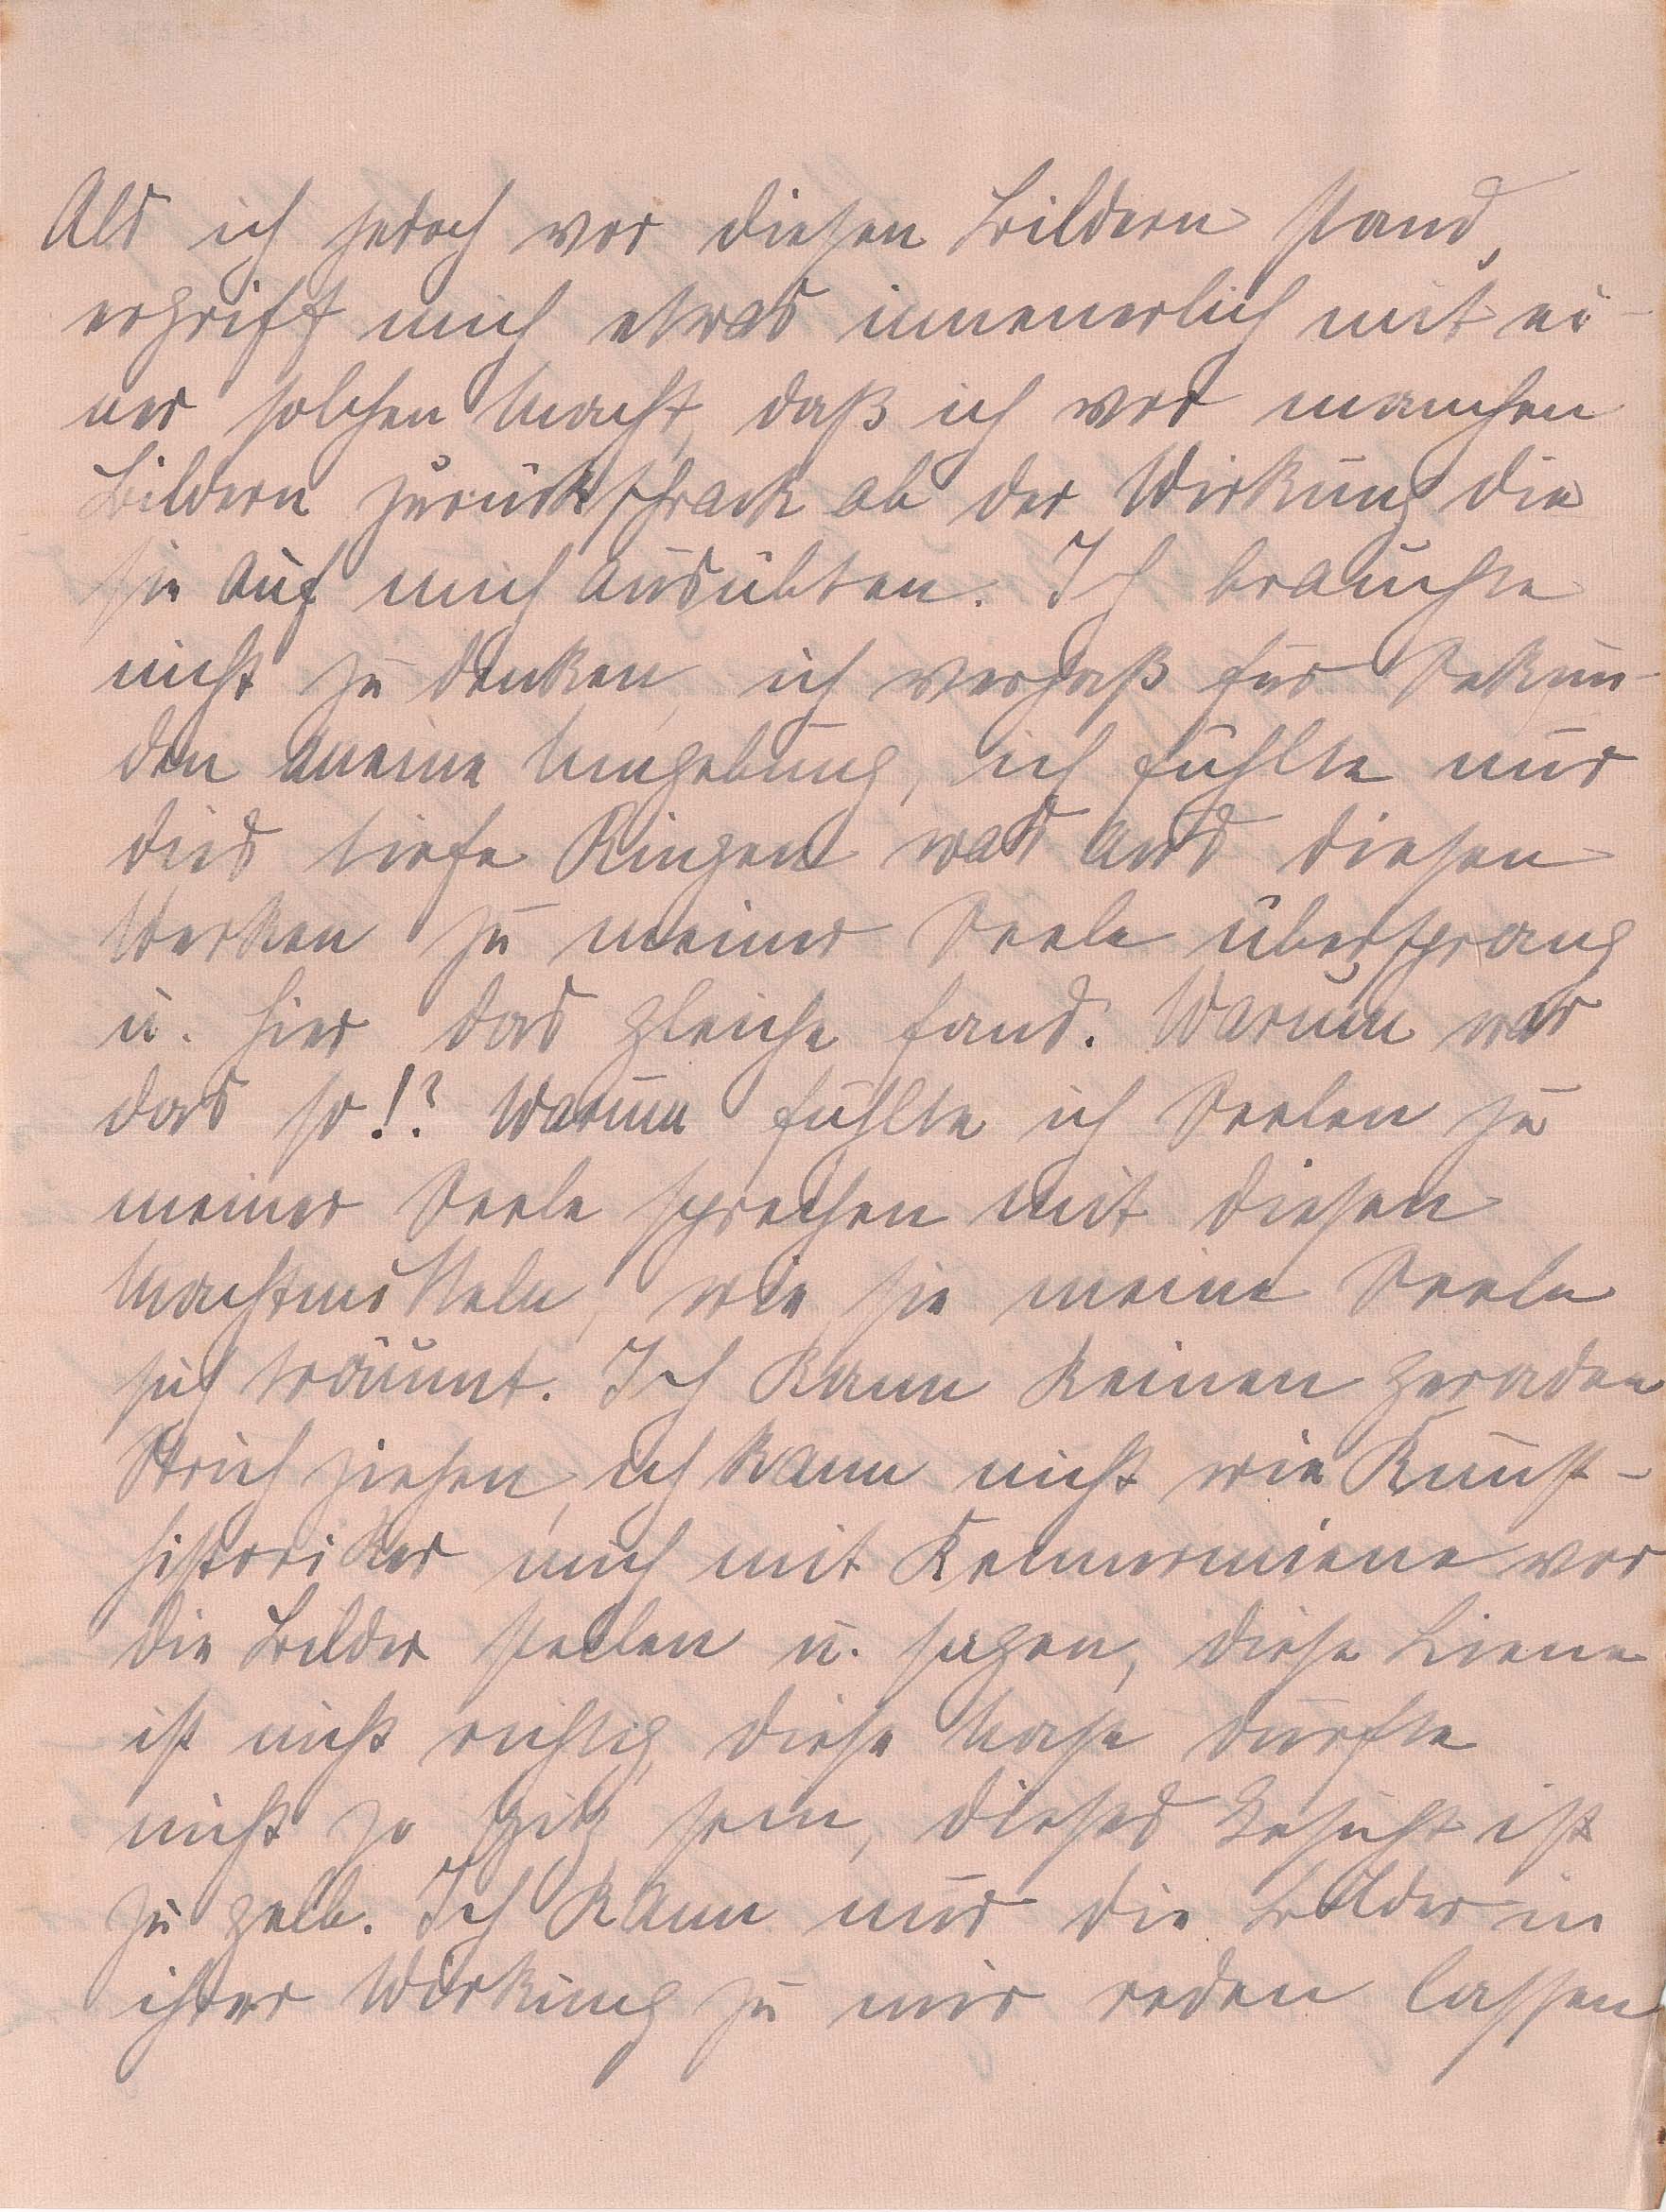 Als ich jedoch vor diesen Bildern stand,
ergriff mich etwas innenerlich mit ei-
ner solchen Macht, daß ich vor manchen
Bildern zurückschrack ob der Wirkung die
sie auf mich ausübten. Ich brauchte
nicht zu denken, ich vergaß für Sekun-
den meine Umgebung, ich fühlte nur
dies tiefe Ringen was aus diesen
Werken zu meiner Seele übersprang
u. hier das gleiche fand. Warum war
das so!? Warum fühlte ich Seelen zu
meiner Seele sprechen mit diesen
Machtmitteln, wie sie meine Seele
sich träumt. Ich kann keinen geraden
Strich ziehen, ich kann nicht wie Kunst-
historiker mich mit Kennermiene vor
die Bilder stellen u. sagen, diese Liene
ist nicht richtig, diese Nase dürfte
nicht so spitz sein, dieses Gesicht ist
zu gelb. Ich kann nur die Bilder in
ihrer Wirkung zu mir reden lassen